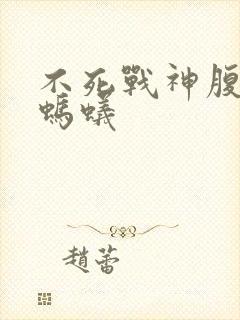 不死戰神腹
螞蟻
趙蕾